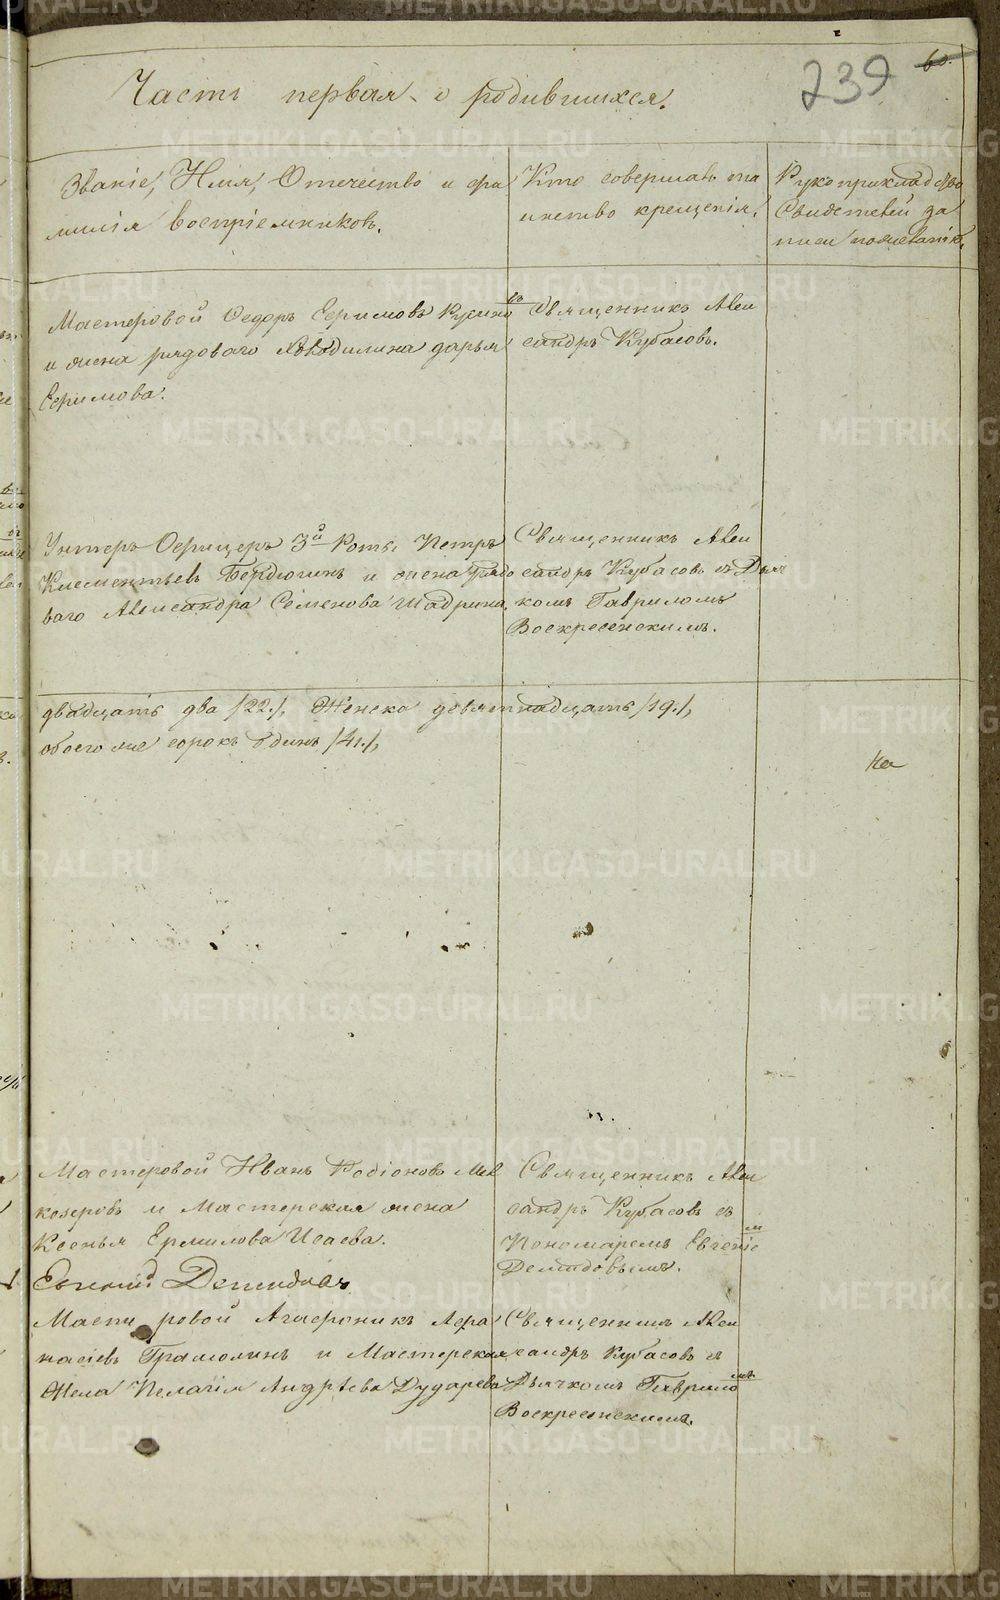 239 60.
Часть первая о родившихся.
Званіе, Имя, Отечество и фа
милія воспріемниковъ.
Кто совершалъ та
инство крещенія.
Рукоприкладство
Свидетелей за
писи пожеланію.
Мастеровой Федоръ Ефимовъ
и жена рядоваго дарья
Ефимова.
Священникъ Алек
сандръ Кубасовъ.
Унтеръ Офицеръ 3й Роты Петръ
Клементьевъ Бердюгинъ и жена Рядо
ваго Александра Семенова Шадрина
Священникъ Алек
сандръ Кубасовъ съ Дьяч
комъ Гавриломъ
Воскресенскимъ.
двадцать два /22./, Женска девятнадцать /19./,
обоего же сорокъ одинъ /41./,
ка
Мастеровой Иванъ Родіоновъ Мел
козеровъ и Мастерская жена
Ксенья Ермилова Исаева.
Священникъ Алек
сандръ Кубасовъ съ
Пономаремъ Евгеніе
мъ
Демидовымъ.
Евгений Демидовъ
Мастеровой Агафоникъ Афа
насьевъ и Мастерская
Жена Пелагія Андреева Дударева
Священникъ Алек
сандръ Кубасовъ съ
Дьячкомъ Гаврило
мъ
Воскресенскимъ.
METRIKI.GASO-URAL.RU